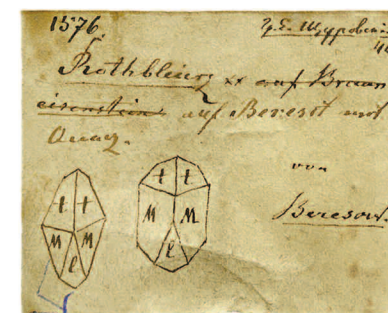 1576.
Гр. Е. Щуровск
Rothbleierz xx auf Braun
eisenstein auf Beresit und
Quarz.
von
Beresow.
t t
M M
l
t t
M M
l